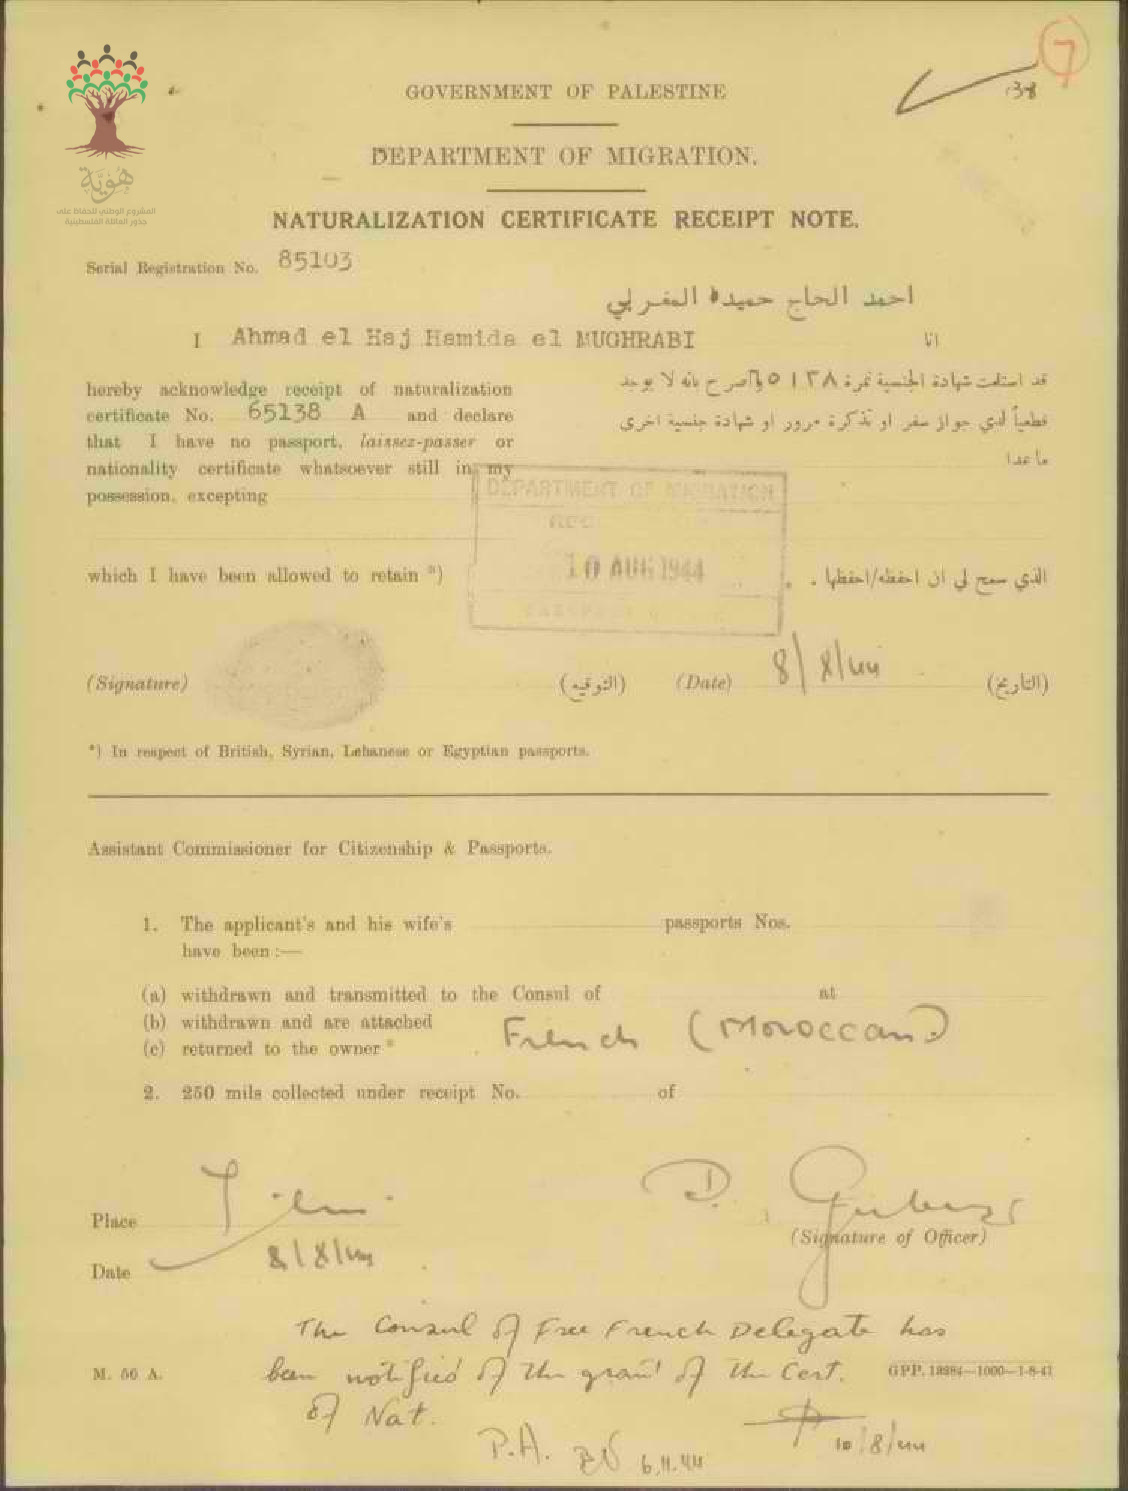 7
38
هويّة
المشروع الوطني للحفاظ على
جذور العائلة الفلسطينية
GOVERNMENT OF PALESTINE
DEPARTMENT OF MIGRATION.
NATURALIZATION CERTIFICATE RECEIPT NOTE.
Serial Registration No. 85103
احمد الحاج حميده المغربي
I Ahmad el Haj Hamida el MUGHRABI
انا
hereby acknowledge receipt of naturalization
certificate No. 65138 A and declare
that I have no passport, laissez-passer or
nationality certificate whatsoever still in my
possession, excepting
قد استلمت شهادة الجنسية نمرة ٦٥١٣٨ واصرح بانه لا يوجد
قطعياً لدي جواز سفر او تذكرة مرور او شهادة جنسية اخرى
ما عدا
DEPARTMENT OF MIGRATION
10 AUG 1944
which I have been allowed to retain *)
الذي سمح لي ان احفظه/احفظها .
(Signature)
(التوقيع)
(Date) 8/8/44
(التاريخ)
*) In respect of British, Syrian, Lebanese or Egyptian passports.
Assistant Commissioner for Citizenship & Passports.
1. The applicant's and his wife's passports Nos.
have been :—
(a) withdrawn and transmitted to the Consul of at
(b) withdrawn and are attached
French (Moroccan)
(c) returned to the owner *
2. 250 mils collected under receipt No. of
Place
(Signature of Officer)
Date 8/8/44
The Consul of Free French Delegate has
been notified of the grant of the Cert.
of Nat.
M. 56 A.
10/8/44
P.A. 6.11.44